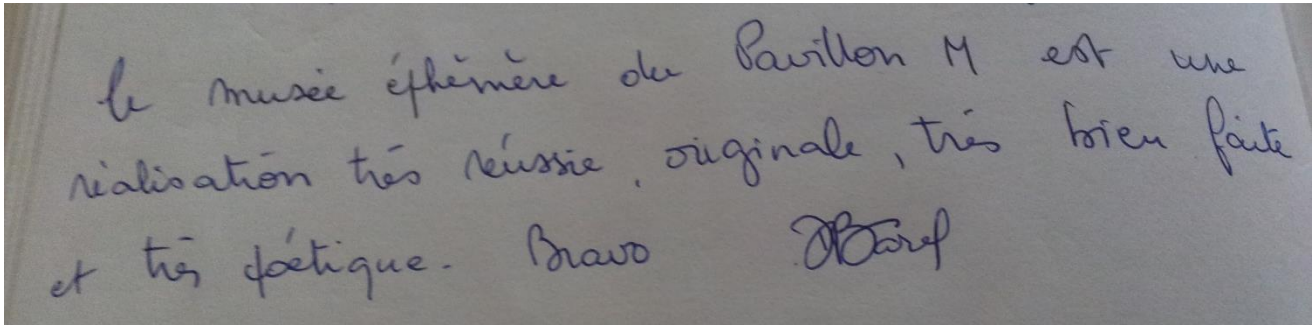 le musée éphémère du Pavillon M est une
réalisation très réussie, originale, très bien faite
et très poétique. Bravo